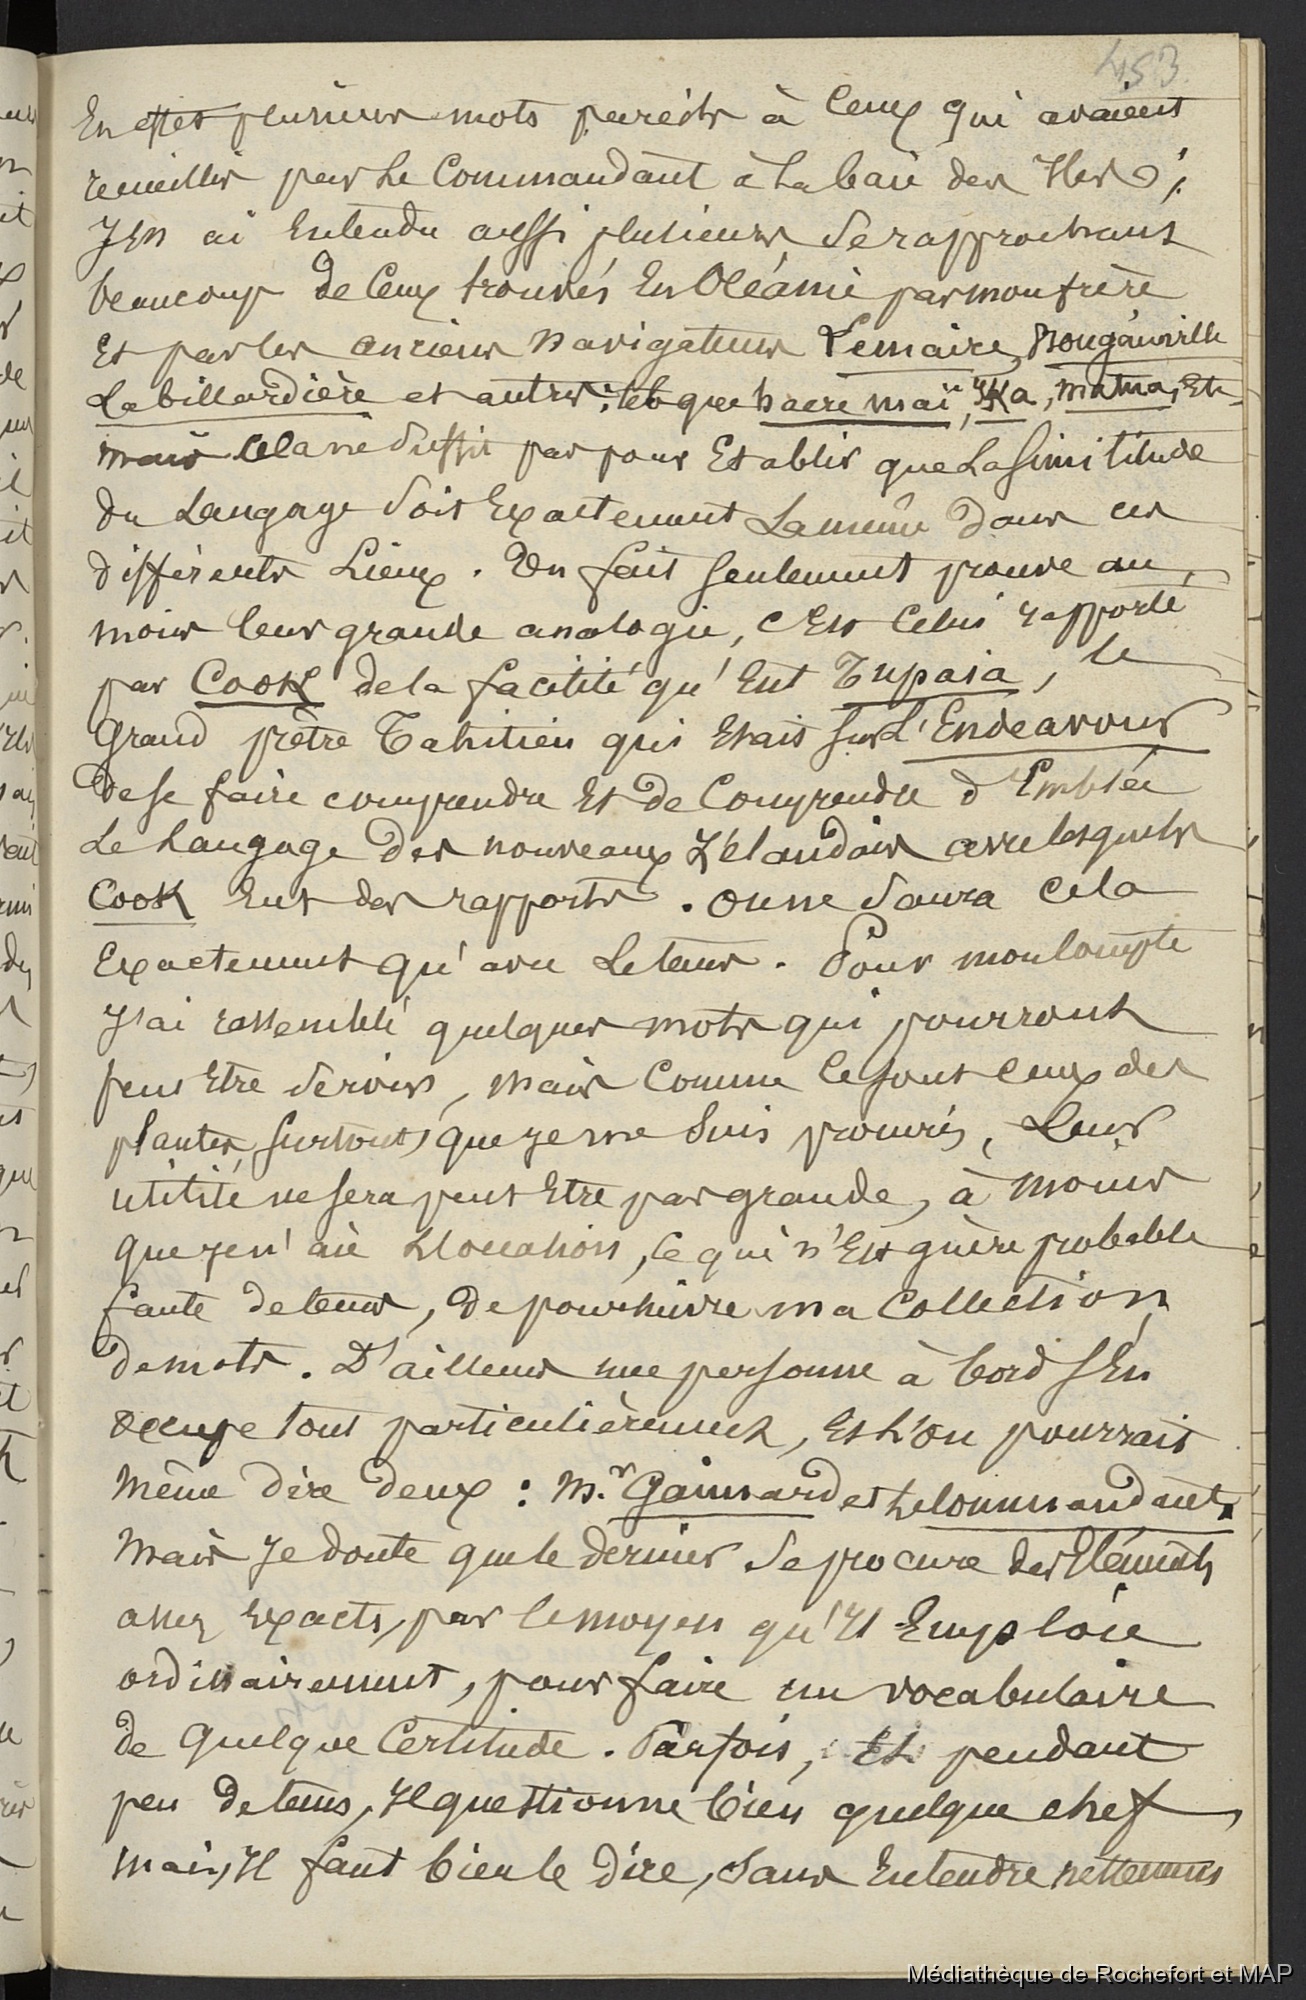 453
En effet plusieurs mots pareils à Ceux qui avaient
recueillis par Le Commandant à La baie des Iles ;
J'En ai Entendu aussi plusieurs Se rapprochant
beaucoup de Ceux trouvés En Océanie par mon frère
Et par les anciens Navigateurs Lemaire, Bougainville
Labillardière et autres : tels que haere mai, Ika, matua, Etc
mais Cela ne Suffit pas pour Etablir que La Similitude
du Langage Soit Exactement La même Dans ces
différents Lieux. Un fait Seulement prouve au
moins leur grande analogie, c'Est Celui rapporté
par Cook de la facilité qu'Eut Tupaia, le
Grand prêtre Tahitien qui Etait Sur L'Endeavour
De se faire comprendre Et de Comprendre d'Emblée
Le Langage Des nouveaux Zélandais avec lesquels
Cook Eut des rapports. On ne Saura Cela
Exactement qu'avec Le tems. Pour mon Compte
J'ai rassemblé quelques mots qui pourront
peut Etre Servir, mais Comme Ce sont ceux des
plantes, Surtout, que je me Suis procurés, Leur
utilité ne Sera peut Etre pas grande, à moins
que je n'aie L'occasion, Ce qui n'Est guère probable
faute de tems, De poursuivre ma Collection
De mots. D'ailleurs une personne à bord S'En
occupe tout particulièrement, Et L'on pourrait
même dire deux : Mr. Gaimard et Le Commandant.
Mais Je doute que le dernier Se procure des Eléments
assez Exacts, par le moyen qu'Il Emploie
ordinairement, pour faire un vocabulaire
de quelque Certitude. Parfois, Et pendant
peu de tems, Il questionne bien quelque chef,
mais, Il faut bien le dire, Sans Entendre nettement
Médiathèque de Rochefort et MAP